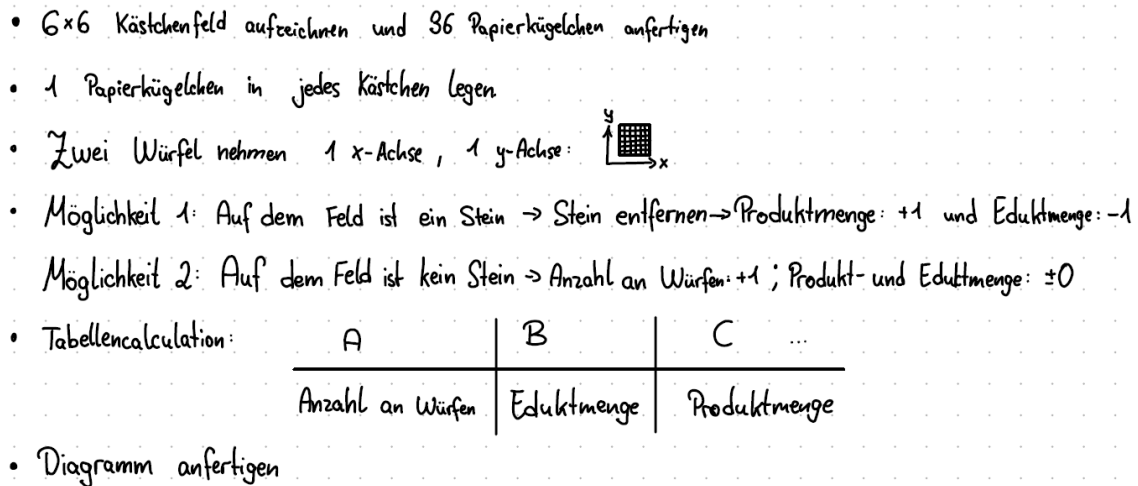 • 6×6 Kästchenfeld aufzeichnen und 36 Papierkügelchen anfertigen
• 1 Papierkügelchen in jedes Kästchen legen
• Zwei Würfel nehmen 1 x-Achse, 1 y-Achse: y x
• Möglichkeit 1: Auf dem Feld ist ein Stein → Stein entfernen → Produktmenge: +1 und Eduktmenge: -1
Möglichkeit 2: Auf dem Feld ist kein Stein → Anzahl an Würfen: +1 ; Produkt- und Eduktmenge: ±0
• Tabellencalculation: A B C ...
Anzahl an Würfen Eduktmenge Produktmenge
• Diagramm anfertigen